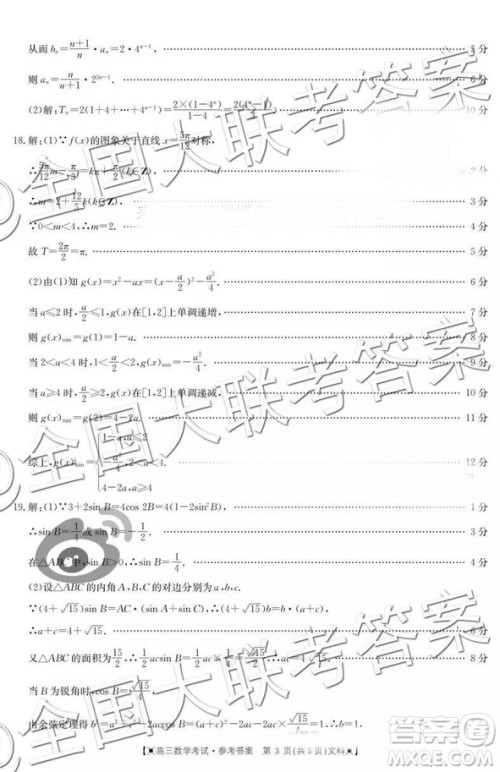 从而 bₙ=(n+1)/n·aₙ=2·4ⁿ⁻¹. 5分
则 aₙ=n/(n+1)·2²ⁿ⁻¹. 6分
(2)解:Tₙ=2(1+4+…+4ⁿ⁻¹)=2×(1-4ⁿ)/(1-4)=2(4ⁿ-1)/3. 10分
18.解:(1)∵f(x)的图象关于直线x=5π/12对称,
∴5π/12 m-π/3=kπ+π/2(k∈Z), 2分
∴m=2+12/5 k(k∈Z). 3分
∵0<m<4,∴m=2. 4分
故 T=2π/2=π. 5分
(2)由(1)知 g(x)=x²-ax=(x-a/2)²-a²/4.
当a≤2时,a/2≤1,g(x)在[1,2]上单调递增, 7分
则 g(x)min=g(1)=1-a. 8分
当2<a<4时,1<a/2<2,g(x)min=-a²/4. 9分
当a≥4时,a/2≥2,g(x)在[1,2]上单调递减, 10分
则 g(x)min=g(2)=4-2a. 11分
综上,g(x)min= -a²/4,2<a<4, 12分
4-2a,a≥4.
19.解:(1)∵3+2sin B=4cos 2B=4(1-2sin²B), 1分
∴sin B=1/4或sin B=-1/2. 3分
在△ABC中,∵sin B>0,∴sin B=1/4. 4分
(2)设△ABC的内角A,B,C的对边分别为a,b,c.
∵(4+√15)sin B=AC·(sin A+sin C),∴(4+√15)b=b·(a+c),
∴a+c=4+√15. 6分
又△ABC的面积为15/2,∴1/2 ac sin B=1/8 ac= 8分
当B为锐角时,cos B=√15/4,
由余弦定理 b²=a²+c²-2accos B=(a+c)²-2ac-2ac× =1,∴b=1.
【高三数学考试·参考答案 第3页(共5页)文科】
全国大联考答案
全国大联考答案
全国大联考答案